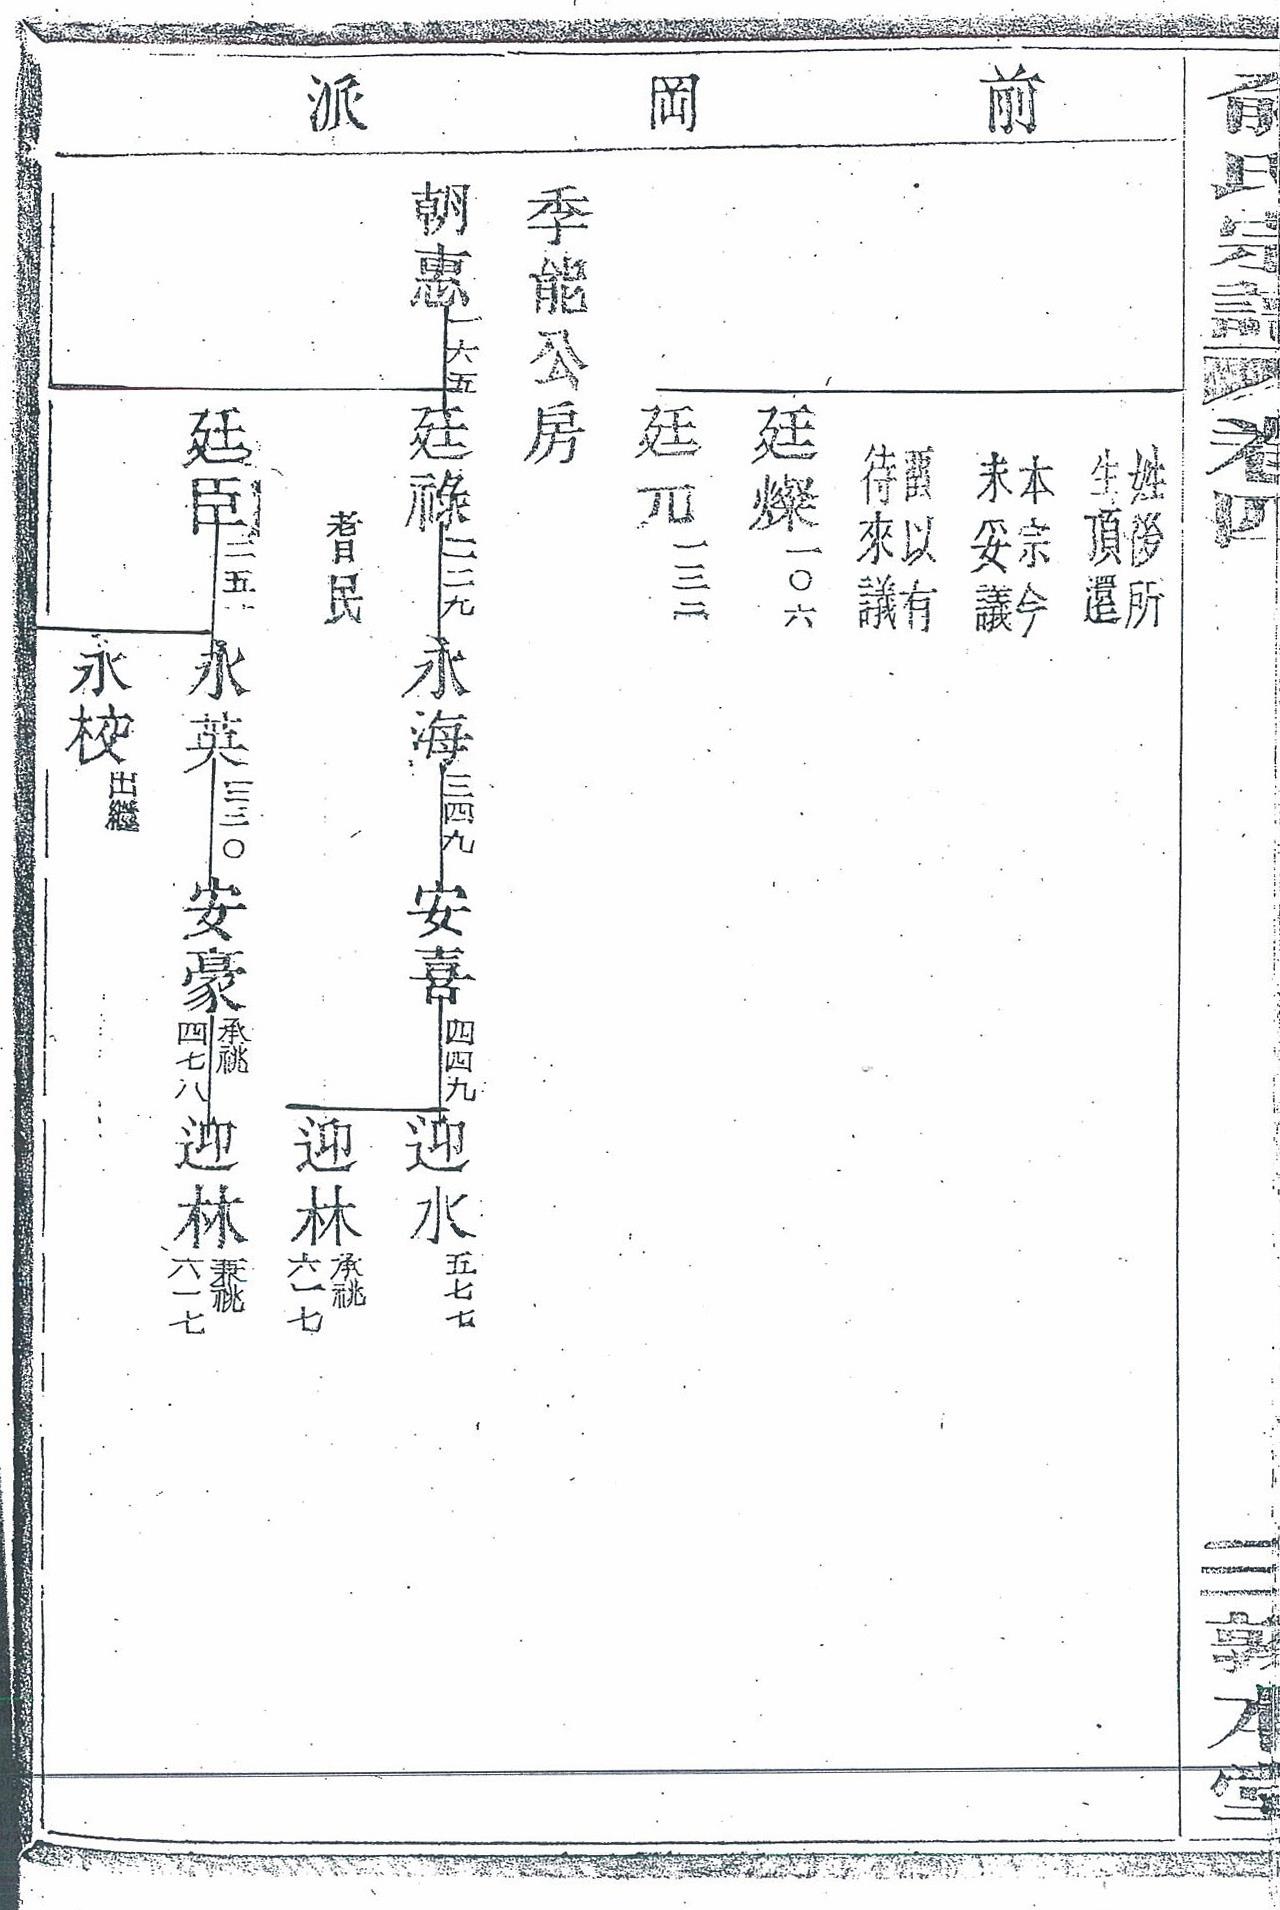 俞氏宗譜 卷四
三 敦本堂
前岡派
姓後所
生頂還
本宗今
未妥議
留以有
待來議
廷燦 一〇六
廷元 一三二
季能公房
朝惠 一六五
廷祿 二二九
永海 三四九
安喜 四四九
迎水 五七七
耆民
迎林 承祧 六一七
廷臣 二五
永英 三三〇
安豪 承祧 四七八
迎林 兼祧 六一七
永校 出繼